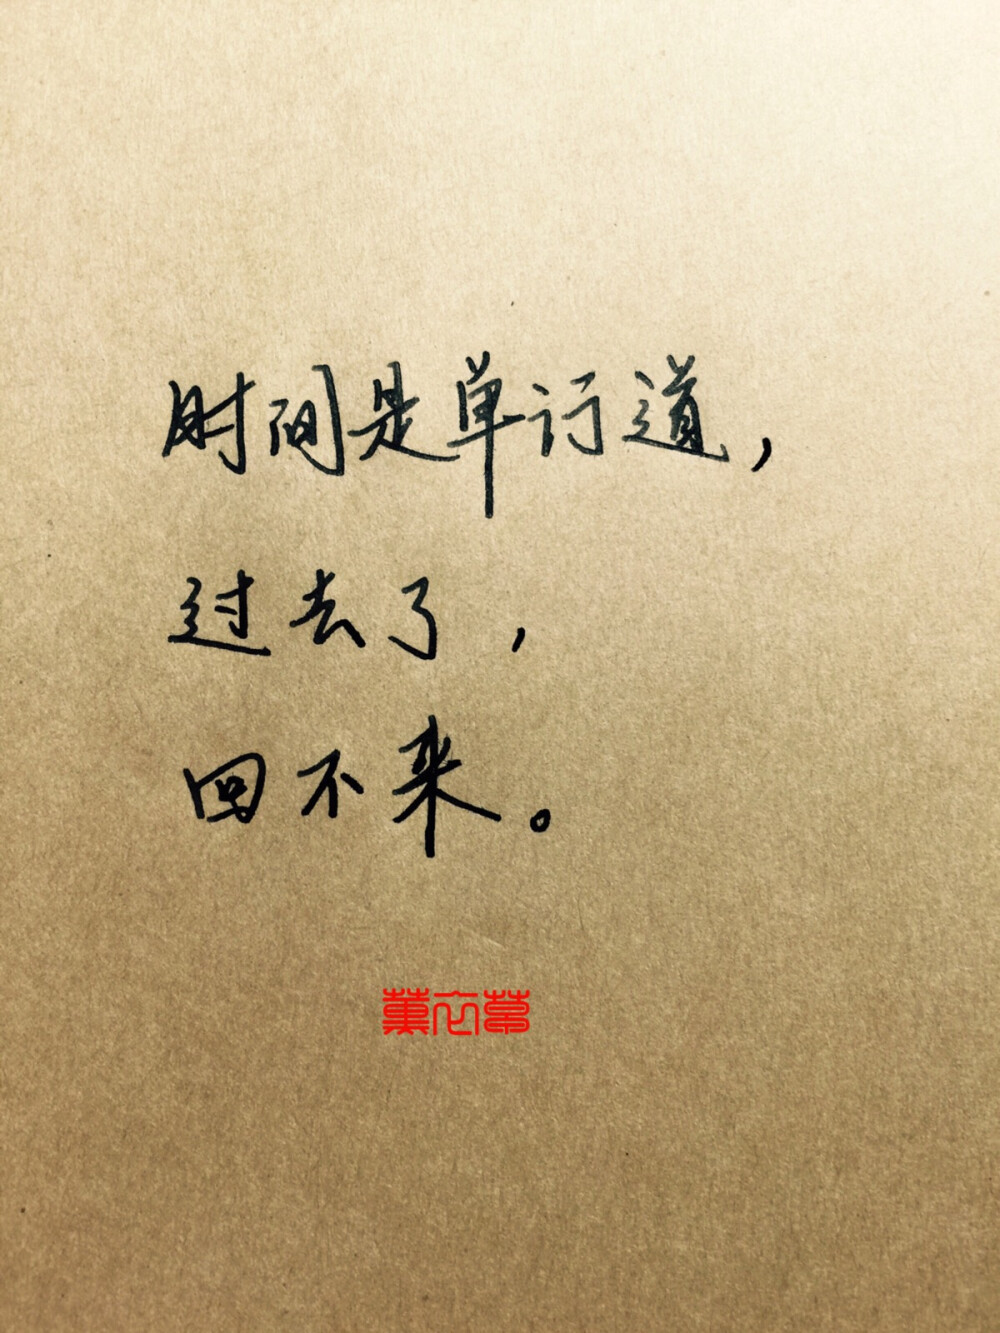 时间是单行道，
过去了，
回不来。
薰衣草